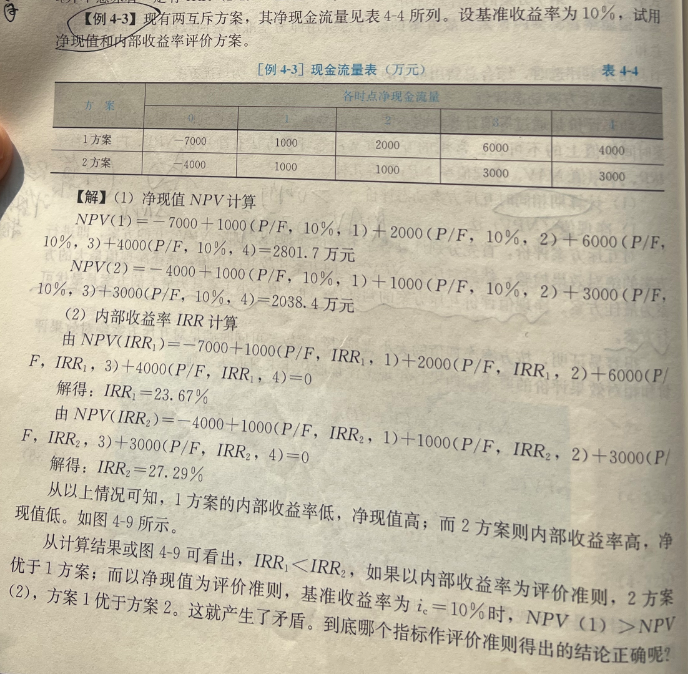 【例 4-3】现有两互斥方案，其净现金流量见表 4-4 所列。设基准收益率为 10%，试用
净现值和内部收益率评价方案。
［例 4-3］现金流量表（万元） 表 4-4
方 案 各时点净现金流量
0 1 2 3 4
1 方案 －7000 1000 2000 6000 4000
2 方案 －4000 1000 1000 3000 3000
【解】（1）净现值 NPV 计算
NPV(1)＝－7000＋1000(P/F，10%，1)＋2000(P/F，10%，2)＋6000(P/F，
10%，3)＋4000(P/F，10%，4)＝2801.7 万元
NPV(2)＝－4000＋1000(P/F，10%，1)＋1000(P/F，10%，2)＋3000(P/F，
10%，3)＋3000(P/F，10%，4)＝2038.4 万元
（2）内部收益率 IRR 计算
由 NPV(IRR₁)＝－7000＋1000(P/F，IRR₁，1)＋2000(P/F，IRR₁，2)＋6000(P/
F，IRR₁，3)＋4000(P/F，IRR₁，4)＝0
解得：IRR₁＝23.67%
由 NPV(IRR₂)＝－4000＋1000(P/F，IRR₂，1)＋1000(P/F，IRR₂，2)＋3000(P/
F，IRR₂，3)＋3000(P/F，IRR₂，4)＝0
解得：IRR₂＝27.29%
从以上情况可知，1 方案的内部收益率低，净现值高；而 2 方案则内部收益率高，净
现值低。如图 4-9 所示。
从计算结果或图 4-9 可看出，IRR₁＜IRR₂，如果以内部收益率为评价准则，2 方案
优于 1 方案；而以净现值为评价准则，基准收益率为 i_c＝10%时，NPV（1）＞NPV
（2），方案 1 优于方案 2。这就产生了矛盾。到底哪个指标作评价准则得出的结论正确呢？